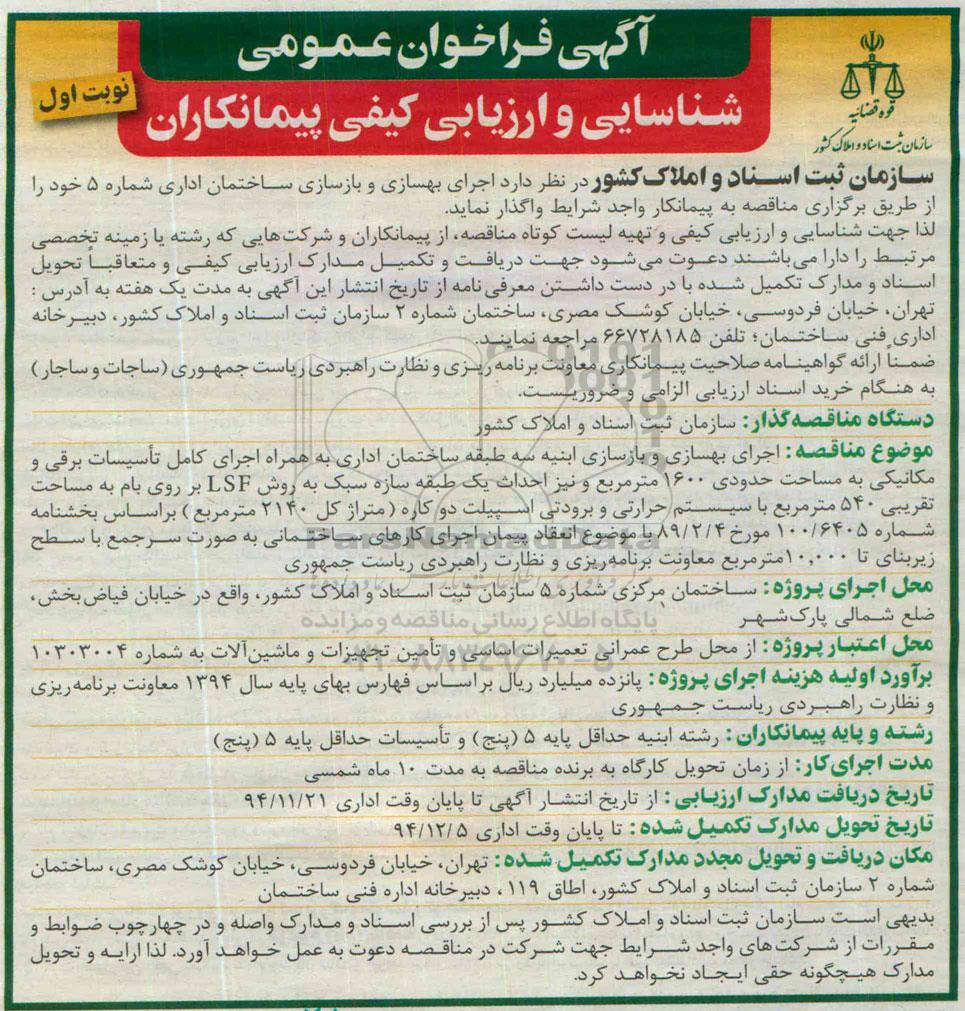 آگهی فراخوان عمومی
شناسایی و ارزیابی کیفی پیمانکاران
نوبت اول
قوه قضائیه
سازمان ثبت اسناد و املاک کشور
سازمان ثبت اسناد و املاک کشور در نظر دارد اجرای بهسازی و بازسازی ساختمان اداری شماره ۵ خود را
از طریق برگزاری مناقصه به پیمانکار واجد شرایط واگذار نماید.
لذا جهت شناسایی و ارزیابی کیفی و تهیه لیست کوتاه مناقصه، از پیمانکاران و شرکت‌هایی که رشته یا زمینه تخصصی
مرتبط را دارا می‌باشند دعوت می‌شود جهت دریافت و تکمیل مدارک ارزیابی کیفی و متعاقباً تحویل
اسناد و مدارک تکمیل شده با در دست داشتن معرفی‌نامه از تاریخ انتشار این آگهی به مدت یک هفته به آدرس :
تهران، خیابان فردوسی، خیابان کوشک مصری، ساختمان شماره ۲ سازمان ثبت اسناد و املاک کشور، دبیرخانه
اداری فنی ساختمان؛ تلفن ۶۶۷۲۸۱۸۵ مراجعه نمایند.
ضمناً ارائه گواهینامه صلاحیت پیمانکاری معاونت برنامه‌ریزی و نظارت راهبردی ریاست جمهوری (ساجات و ساجار)
به هنگام خرید اسناد ارزیابی الزامی و ضروریست.
دستگاه مناقصه‌گذار: سازمان ثبت اسناد و املاک کشور
موضوع مناقصه: اجرای بهسازی و بازسازی ابنیه سه طبقه ساختمان اداری به همراه اجرای کامل تأسیسات برقی و
مکانیکی به مساحت حدودی ۱۶۰۰ مترمربع و نیز احداث یک طبقه سازه سبک به روش LSF بر روی بام به مساحت
تقریبی ۵۴۰ مترمربع با سیستم حرارتی و برودتی اسپیلت دو کاره (متراژ کل ۲۱۴۰ مترمربع) براساس بخشنامه
شماره ۱۰۰/۶۴۰۵ مورخ ۸۹/۲/۴ با موضوع انعقاد پیمان اجرای کارهای ساختمانی به صورت سرجمع با سطح
زیربنای تا ۱۰,۰۰۰مترمربع معاونت برنامه‌ریزی و نظارت راهبردی ریاست جمهوری
محل اجرای پروژه: ساختمان مرکزی شماره ۵ سازمان ثبت اسناد و املاک کشور، واقع در خیابان فیاض‌بخش،
ضلع شمالی پارک‌شهر
محل اعتبار پروژه: از محل طرح عمرانی تعمیرات اساسی و تأمین تجهیزات و ماشین‌آلات به شماره ۱۰۳۰۳۰۰۴
برآورد اولیه هزینه اجرای پروژه: پانزده میلیارد ریال براساس فهارس بهای پایه سال ۱۳۹۴ معاونت برنامه‌ریزی
و نظارت راهبردی ریاست جمهوری
رشته و پایه پیمانکاران: رشته ابنیه حداقل پایه ۵ (پنج) و تأسیسات حداقل پایه ۵ (پنج)
مدت اجرای‌کار: از زمان تحویل کارگاه به برنده مناقصه به مدت ۱۰ ماه شمسی
تاریخ دریافت مدارک ارزیابی: از تاریخ انتشار آگهی تا پایان وقت اداری ۹۴/۱۱/۲۱
تاریخ تحویل مدارک تکمیل شده: تا پایان وقت اداری ۹۴/۱۲/۵
مکان دریافت و تحویل مجدد مدارک تکمیل شده: تهران، خیابان فردوسی، خیابان کوشک مصری، ساختمان
شماره ۲ سازمان ثبت اسناد و املاک کشور، اطاق ۱۱۹، دبیرخانه اداره فنی ساختمان
بدیهی است سازمان ثبت اسناد و املاک کشور پس از بررسی اسناد و مدارک واصله و در چهارچوب ضوابط و
مقررات از شرکت‌های واجد شرایط جهت شرکت در مناقصه دعوت به عمل خواهد آورد. لذا ارایه و تحویل
مدارک هیچگونه حقی ایجاد نخواهد کرد.
ParsNamadData
پایگاه اطلاع رسانی مناقصه و مزایده